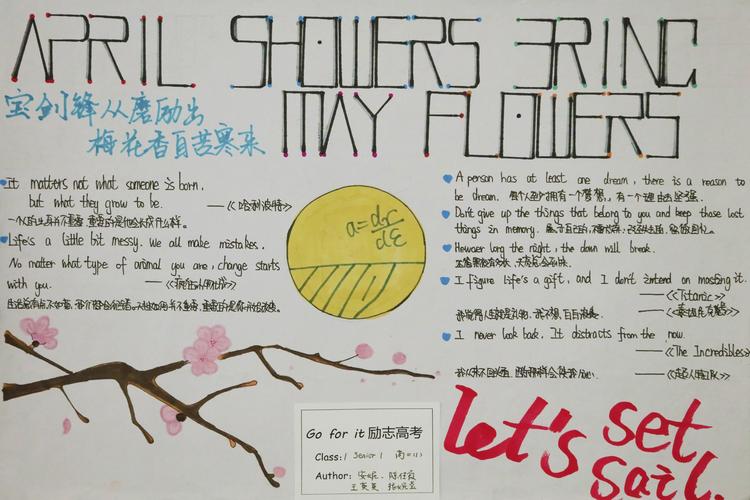 APRIL SHOWERS BRING
MAY FLOWERS
宝剑锋从磨励出
梅花香自苦寒来
It matters not what someone is born,
but what they grow to be.
——《哈利波特》
Life's a little bit messy. we all make mistakes.
No matter what type of animal you are, change starts
with you. ——《疯狂动物城》
a=dv/dt
A person has at least one dream, there is a reason to
be dream. 每个人至少拥有一个梦想,有一个理由去坚强.
Don't give up the things that belong to you and keep those lost
things in memory.
However long the night, the down will break.
I figure life's a gift, and I don't intend on wasting it.
——《Titanic》
——《泰坦尼克号》
I never look back, It distracts from the now.
——《The Incredibles》
——《超人特工队》
Go for it 励志高考
Class: Senior 1
Author:
let's set
sail.